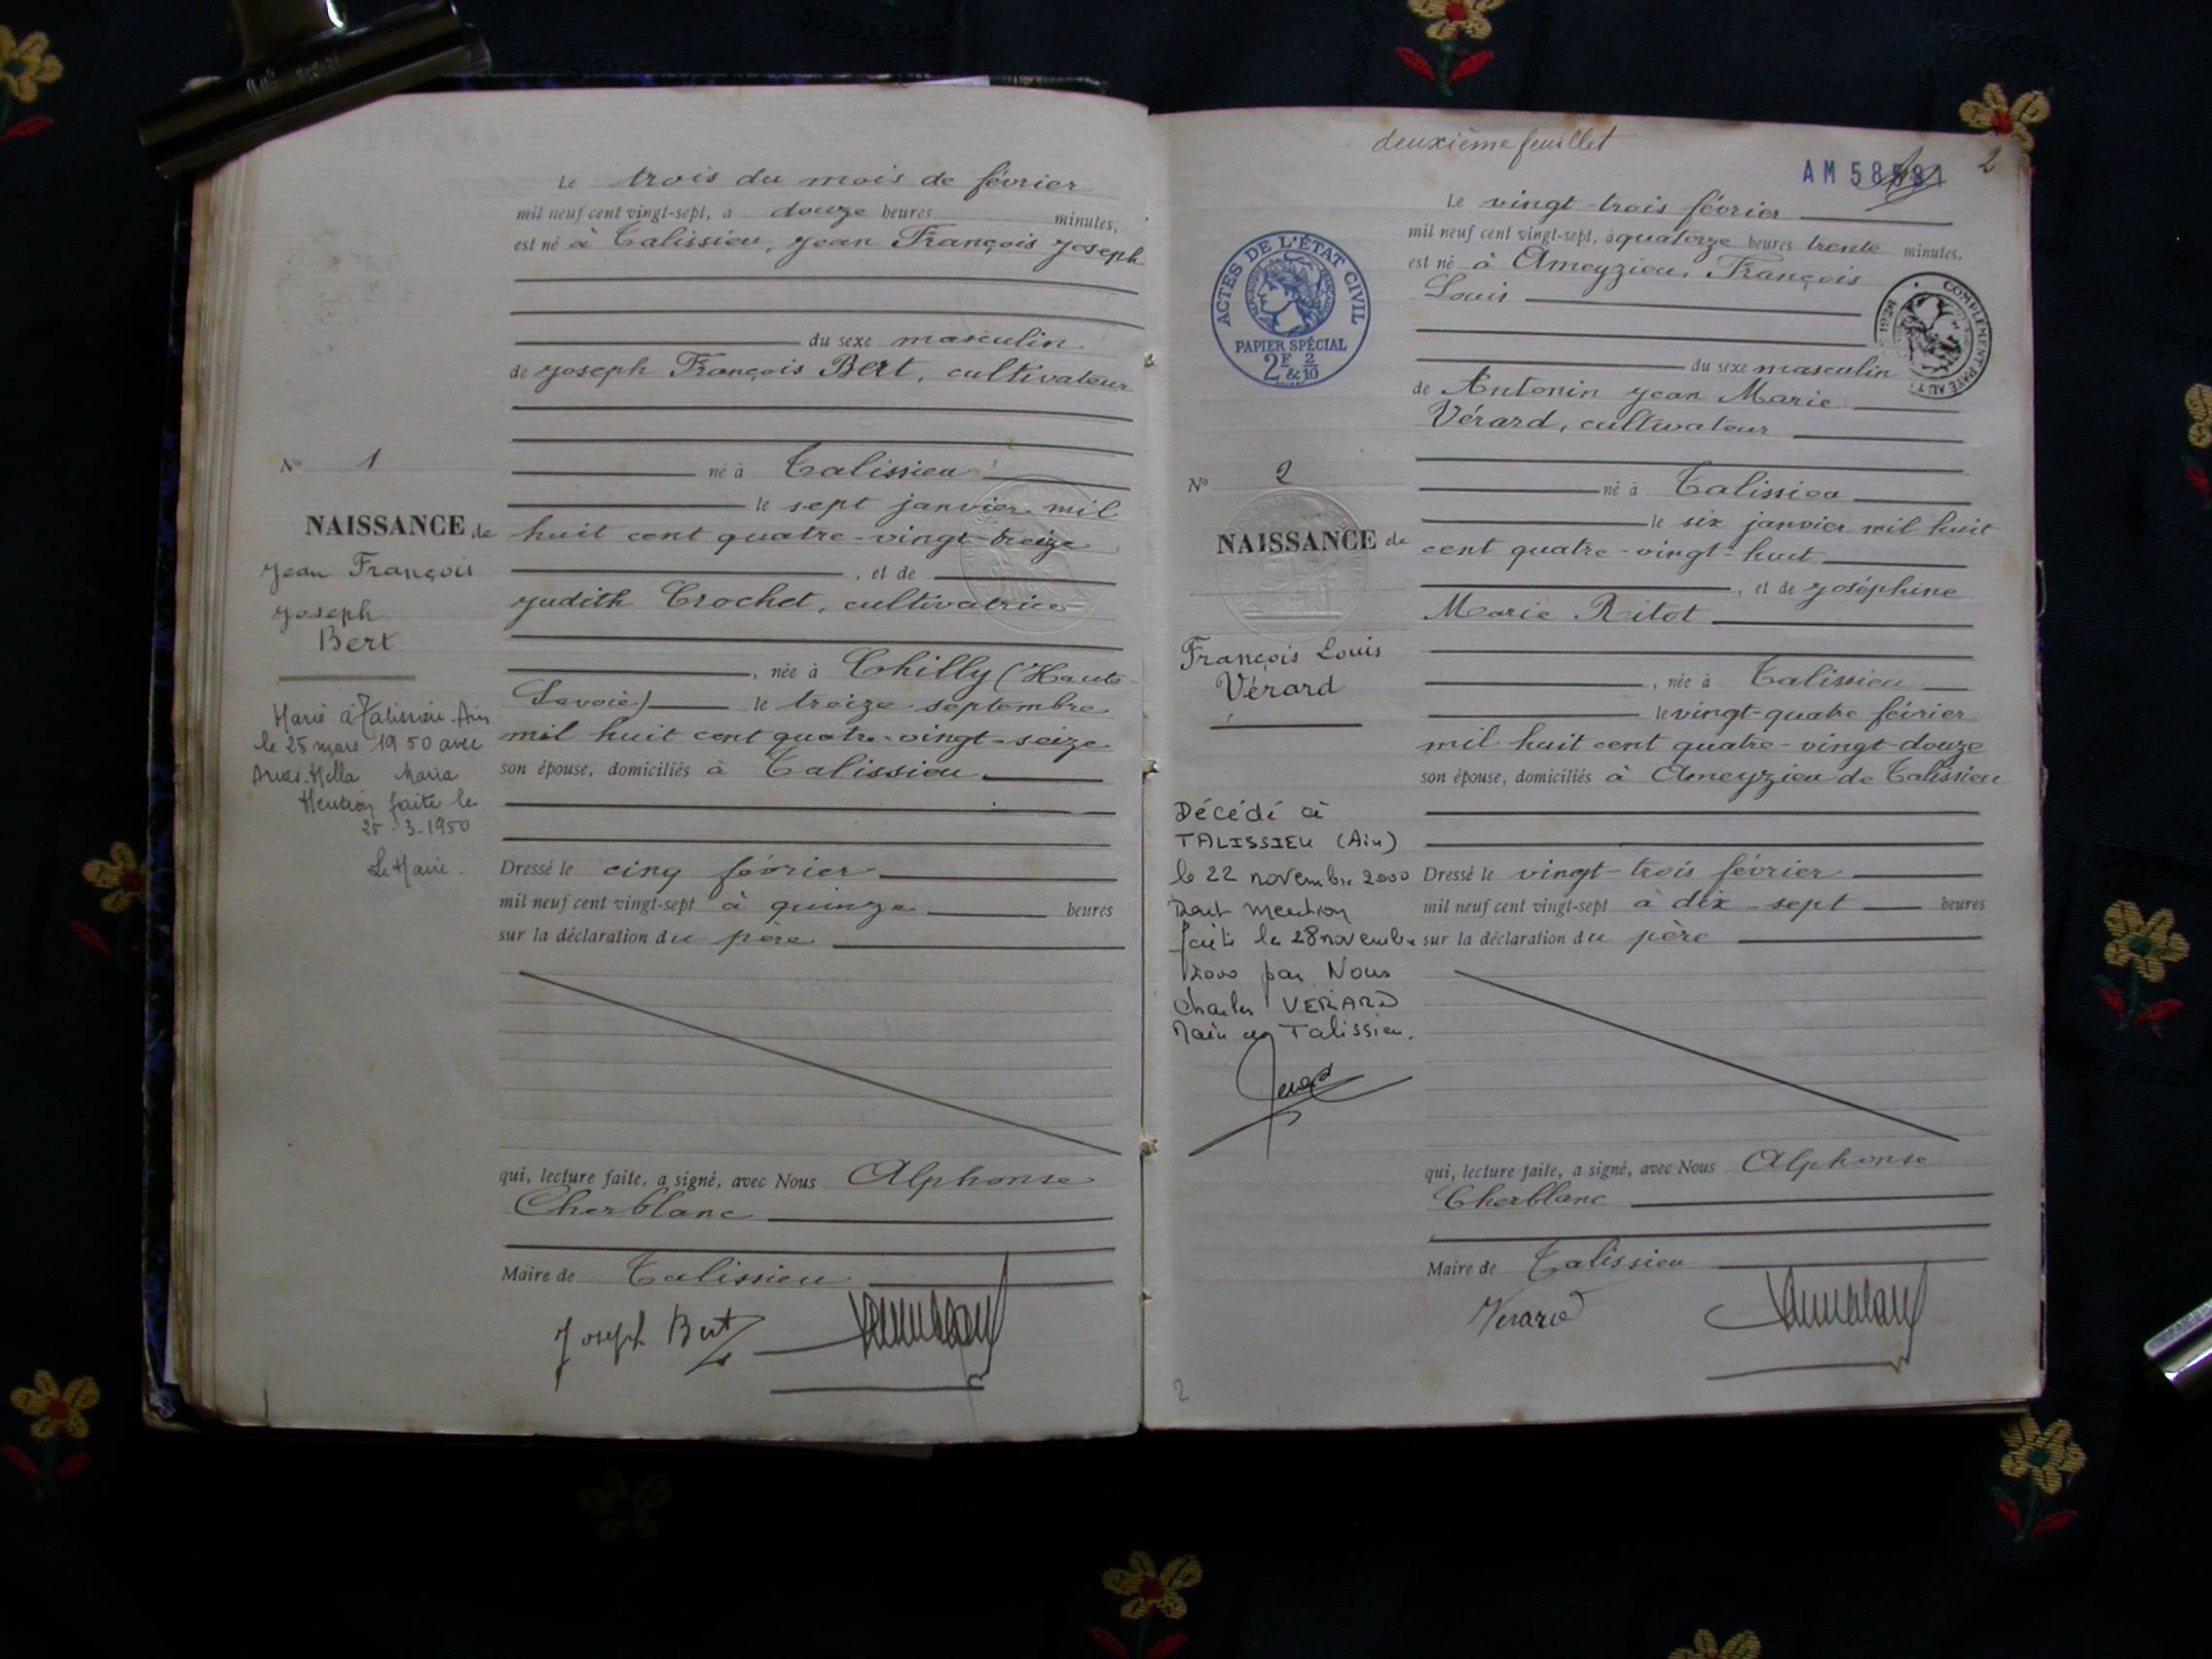 Le trois du mois de février
mil neuf cent vingt-sept, à douze heures minutes,
est né à Talissieu, Jean François Joseph
du sexe masculin
de Joseph François Bert, cultivateur
né à Talissieu
le sept janvier mil
huit cent quatre-vingt-treize
, et de
Judith Crochet, cultivatrice
, née à Chilly (Haute-
Savoie) le treize septembre
mil huit cent quatre-vingt-seize
son épouse, domiciliés à Talissieu
Dressé le cinq février
mil neuf cent vingt-sept à quinze heures
sur la déclaration du père
qui, lecture faite, a signé, avec Nous Alphonse
Cherblanc
Maire de Talissieu
Joseph Bert
N° 1
NAISSANCE de
Jean François
Joseph
Bert
Marié à Talissieu-Ain
le 25 mars 1950 avec
Maria
Mention faite le
25-3-1950
Le Maire.
deuxième feuillet
2
AM 58581
ACTES DE L'ÉTAT CIVIL
PAPIER SPÉCIAL
2F & 2/10
COMPLÉMENT PAYÉ AU T
1926
Le vingt-trois février
mil neuf cent vingt-sept, à quatorze heures trente minutes,
est né à Ameyzieu, François
Louis
du sexe masculin
de Antonin Jean Marie
Vérard, cultivateur
né à Talissieu
le six janvier mil huit
cent quatre-vingt-huit
, et de Joséphine
Marie Ritot
, née à Talissieu
le vingt-quatre février
mil huit cent quatre-vingt-douze
son épouse, domiciliés à Ameyzieu de Talissieu
Dressé le vingt-trois février
mil neuf cent vingt-sept à dix-sept heures
sur la déclaration du père
qui, lecture faite, a signé, avec Nous Alphonse
Cherblanc
Maire de Talissieu
Verard
N° 2
NAISSANCE de
François Louis
Vérard
Décédé à
TALISSIEU (Ain)
le 22 novembre 2000
Dont mention
faite le 28 novembre
2000 par Nous
Charles VERARD
Maire de Talissieu.
2